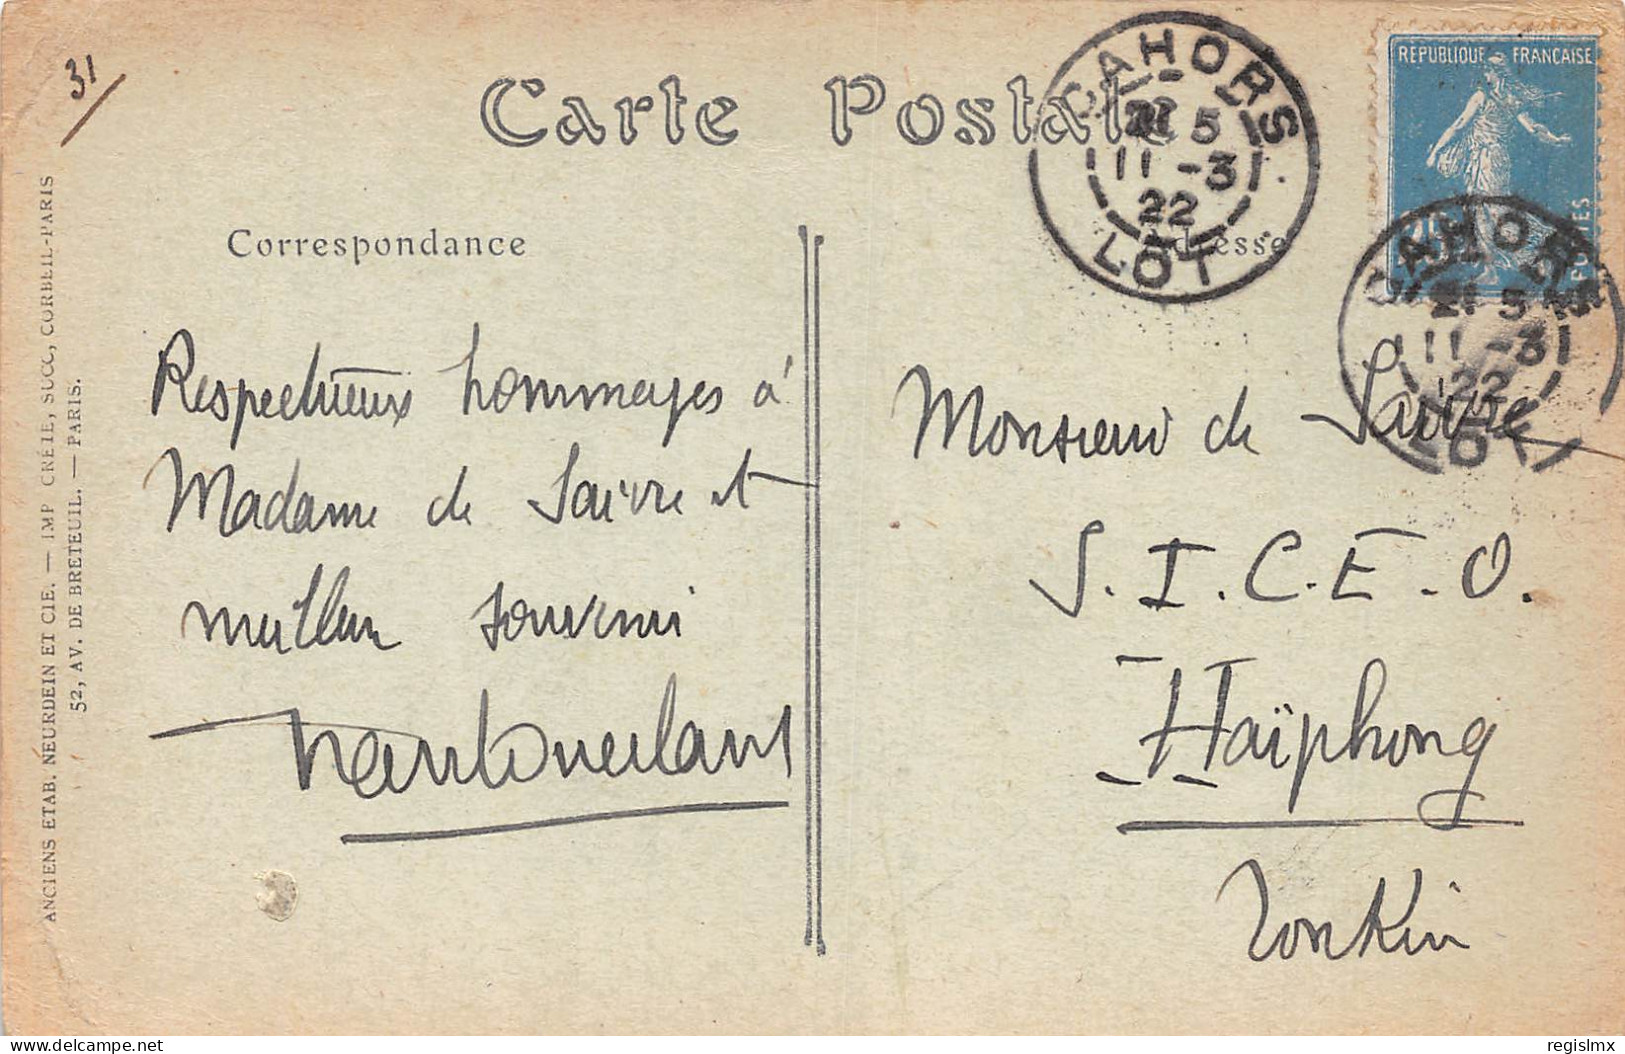 31
Carte Postale
CAHORS
21 5
11 -3
22
LOT
RÉPUBLIQUE FRANÇAISE
POSTES
CAHORS
21 5
11 -3
22
LOT
Correspondance
Adresse
Respectueux hommages à
Madame de Saivre et
meilleur souvenir
Monsieur de Saivre
S.I.C.E.O.
Haïphong
Tonkin
ANCIENS ETAB. NEURDEIN ET CIE. — IMP CRÉTÉ, SUCC, CORBEIL-PARIS
52, AV. DE BRETEUIL. — PARIS.
delcampe.net
regislmx